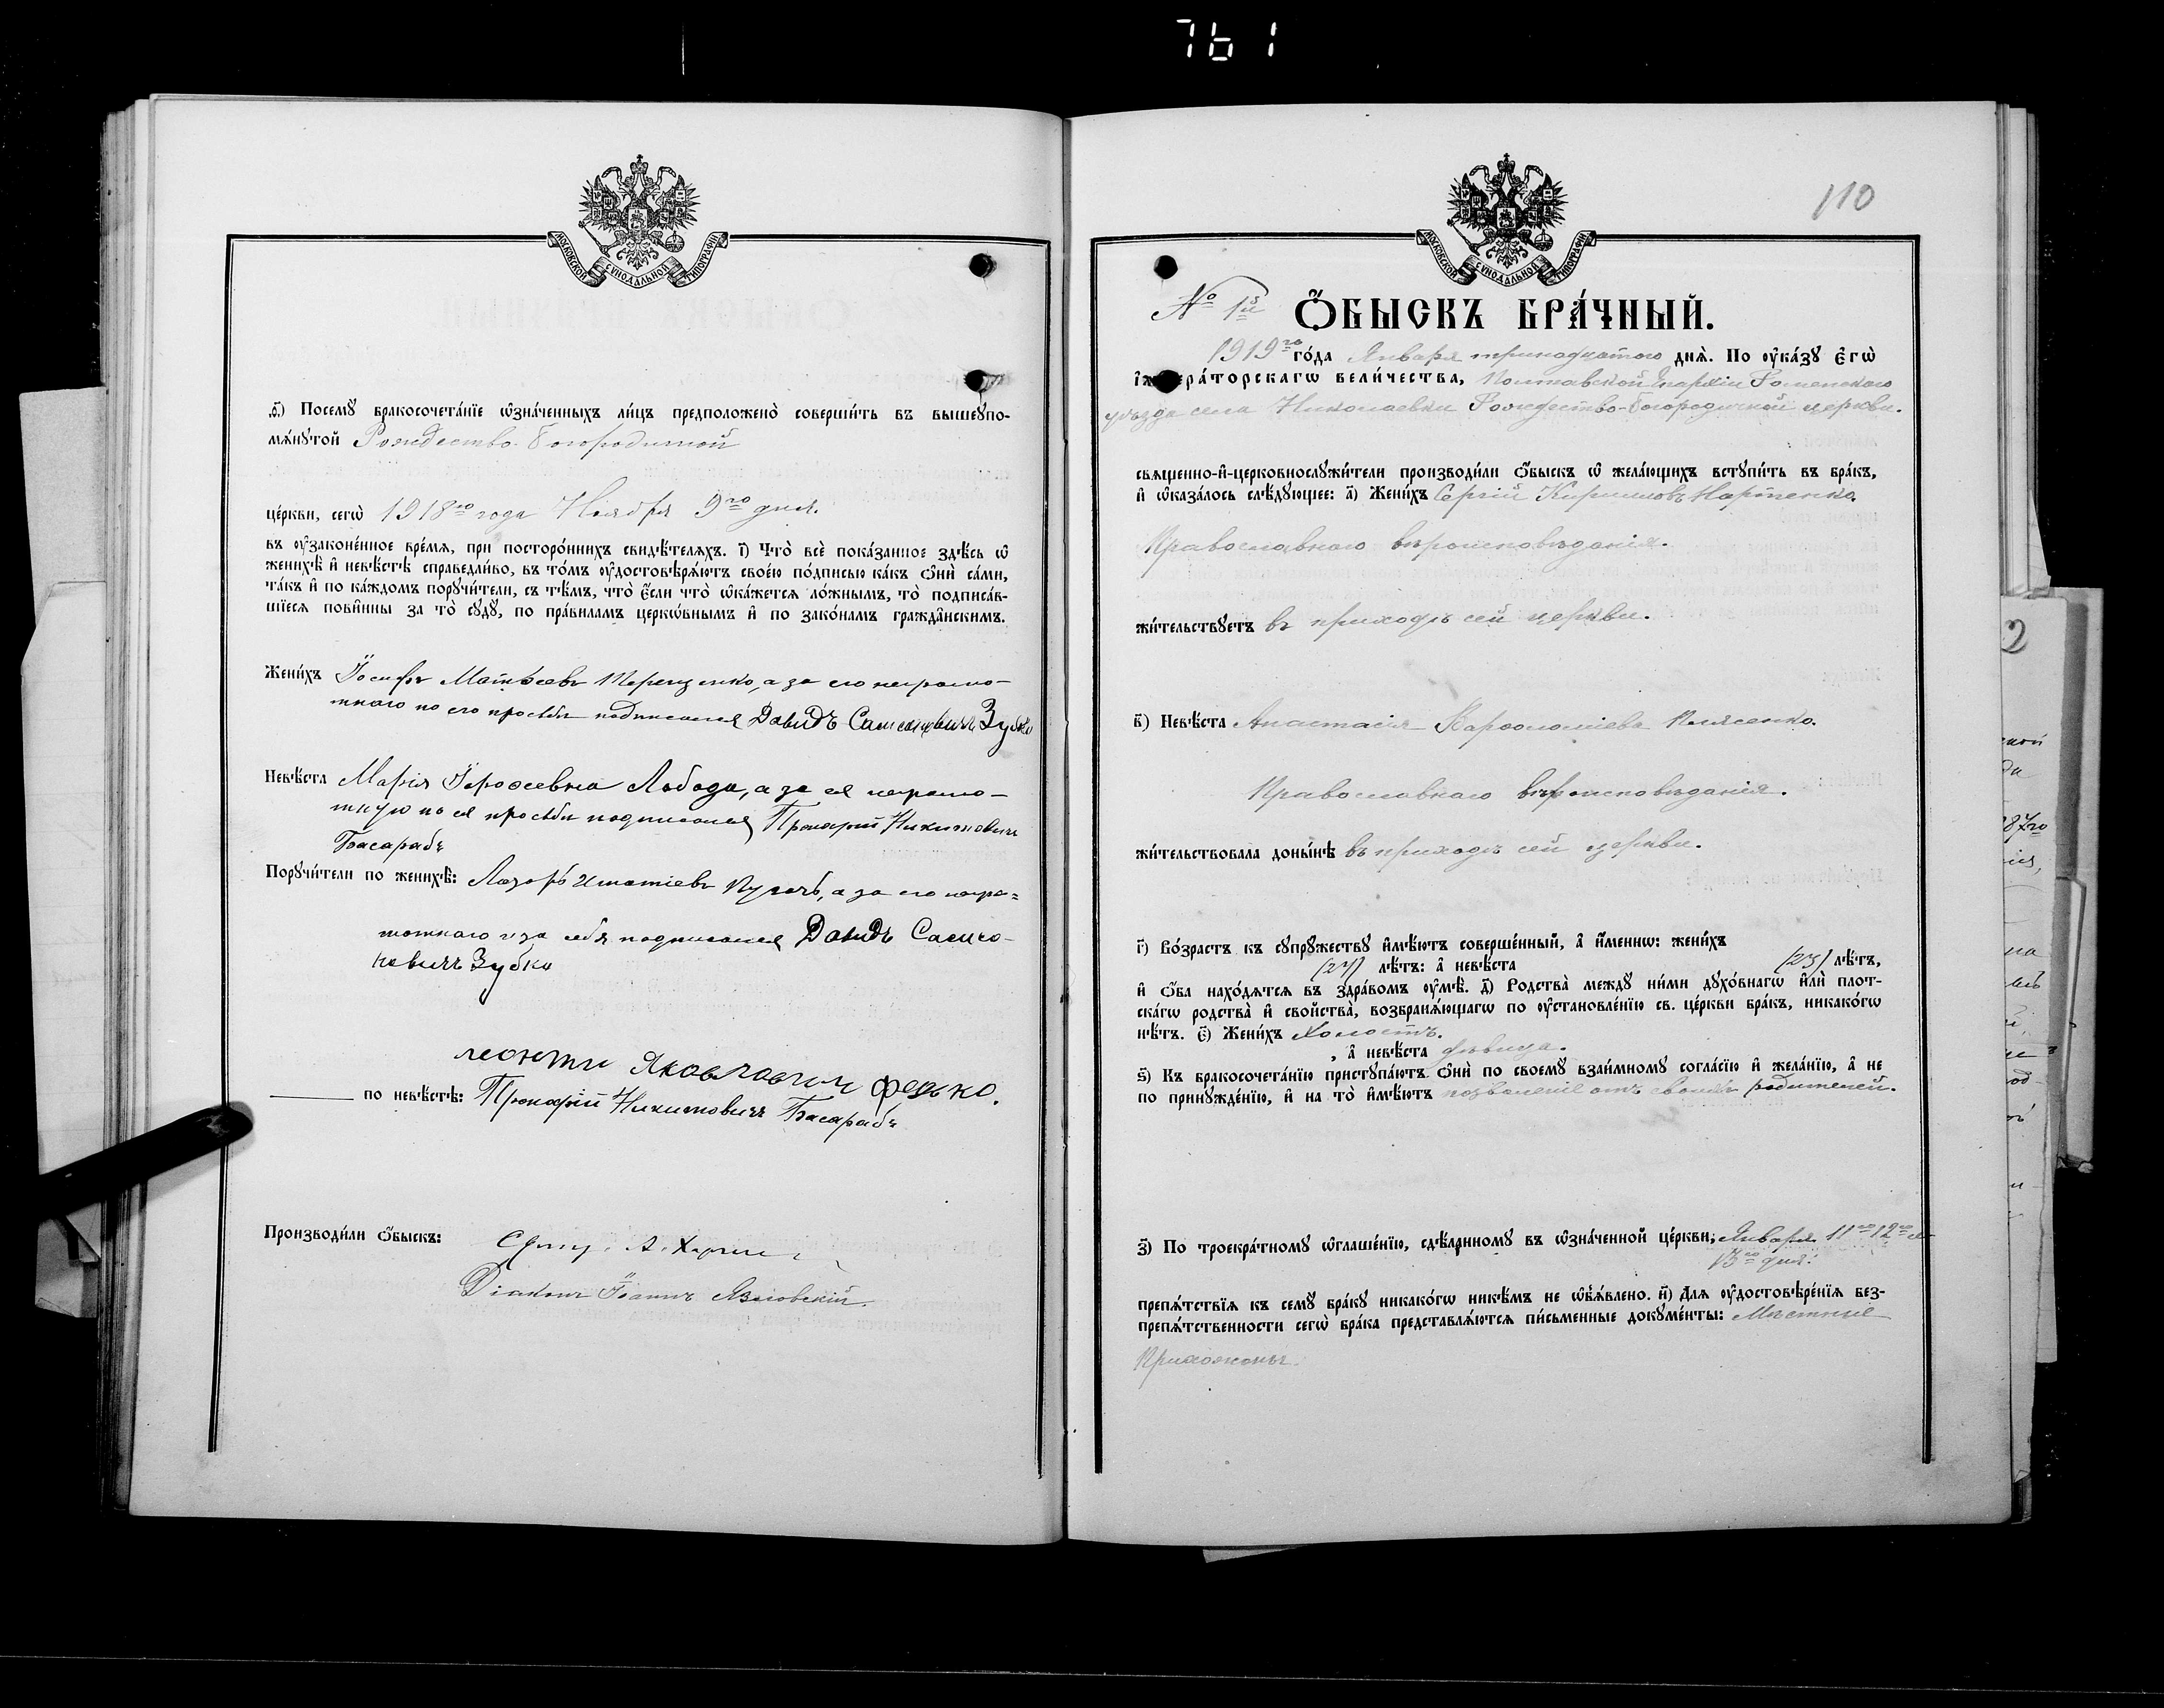 761
МОСКОВСКОЙ СУНОДАЛЬНОЙ ТИПОГРАФІИ
.ѳ҃) Посемꙋ̀ бракосочета́нїе ѿзна́ченныхъ ли́цъ предположено̀ соверши́ть въ вышеꙋпо-
мѧ́нꙋтой Рождество-Богородичной
це́ркви, сегѡ̀ 1918го года Ноября 9го дня.
въ ᲂу҆зако́ненное вре́мѧ, при посторо́ннихъ свидѣ́телѧхъ. і҃) Что̀ всѐ пока́занное здѣ́сь ѡ҆
женихѣ̀ и҆ невѣ́стѣ справедли́во, въ то́мъ ᲂу҆достовѣрѧ́ютъ свое́ю по́дписью ка́къ ѻ҆нѝ са́ми,
та́къ и҆ по ка́ждомъ порꙋчи́тели, съ тѣ́мъ, что̀ є҆́сли что̀ ѡ҆ка́жетсѧ ло́жнымъ, то̀ подписа́в-
шїесѧ пови́нны за то̀ сꙋдꙋ̀, по пра́виламъ церкѡ́внымъ и҆ по зако́намъ гражда́нскимъ.
Жени́хъ Іосифъ Матѳеевъ Терещенко, а за его неграмо-
тнаго по его просьбѣ подписался Давидъ Самсоновичъ Зубко
Невѣ́ста Марія Іероѳеевна Лобода, а за ея неграмо-
тную по ея просьбѣ подписался Прокофій Никитовичъ
Басарабъ
Порꙋчи́тели по женихѣ̀: Лазарь Игнатіевъ Пугачъ, а за его негра=
мотнаго и за себя подписался Давидъ Самсо-
новичъ Зубко
леонти Яковлович федько.
по невѣ́стѣ: Прокофій Никитовичъ Басарабъ
Производи́ли ѻ҆́быскъ:
Діаконъ Іоаннъ
110
МОСКОВСКОЙ СУНОДАЛЬНОЙ ТИПОГРАФІИ
№ 1й Ѻ҆́БЫСКЪ БРА́ЧНЫЙ.
1919го го́да Января тринадцатого днѧ̀. По ᲂу҆ка́зꙋ є҆гѡ̀
і҆мпера́торскагѡ вели́чества, Полтавской Епархіи Роменского
уѣзда села Николаевки Рождество-Богородичной церкви.
свѧщенно-и҆-церковнослꙋжи́тели производи́ли ѻ҆́быскъ ѡ҆ жела́ющихъ встꙋпи́ть въ бра́къ,
и҆ ѡ҆каза́лось слѣ́дꙋющее: а҃) Жени́хъ Сергій Кирилловъ Нартенко.
Православного вѣроисповѣданія.
жи́тельствꙋетъ въ приходѣ сей церкви.
в҃) Невѣ́ста Анастасія Варѳоломіева
Православнаго вѣроисповѣданія.
жи́тельствовала доны́нѣ въ приходѣ сей церкви.
г҃) Во́зрастъ къ сꙋпрꙋ́жествꙋ и҆мѣ́ютъ соверше́нный, а҆ и҆́меннѡ: жени́хъ
(24) лѣ́тъ: а҆ невѣ́ста (23) лѣ́тъ,
и҆ ѻ҆́ба нахо́дѧтсѧ въ здра́вомъ ᲂу҆мѣ̀. д҃) Родства̀ междꙋ̀ ни́ми дꙋхо́внагѡ и҆лѝ плот-
ска́гѡ родства̀ и҆ сво́йства, возбранѧ́ющагѡ по ᲂу҆становле́нїю св. це́ркви бра́къ, никако́гѡ
нѣ́тъ. є҃) Жени́хъ холостъ.
, а҆ невѣ́ста дѣвица.
ѕ҃) Къ бракосочета́нїю пристꙋпа́ютъ ѻ҆нѝ по своемꙋ̀ взаи́мномꙋ согла́сїю и҆ жела́нїю, а҆ не
по принꙋжде́нїю, и҆ на то̀ и҆мѣ́ютъ позволеніе отъ своихъ родителей.
з҃) По троекра́тномꙋ ѡ҆глаше́нїю, сдѣ́ланномꙋ въ ѿзна́ченной це́ркви; Января 11го 12го и
13го дня.
препѧ́тствїѧ къ семꙋ̀ бра́кꙋ никако́гѡ никѣ́мъ не ѡ҆б̾ѧ́влено. и҃) Для ᲂу҆достовѣре́нїѧ без-
препѧ́тственности сегѡ̀ бра́ка представлѧ́ютсѧ пи́сьменные докꙋме́нты: Мѣстные
Прихожаны.